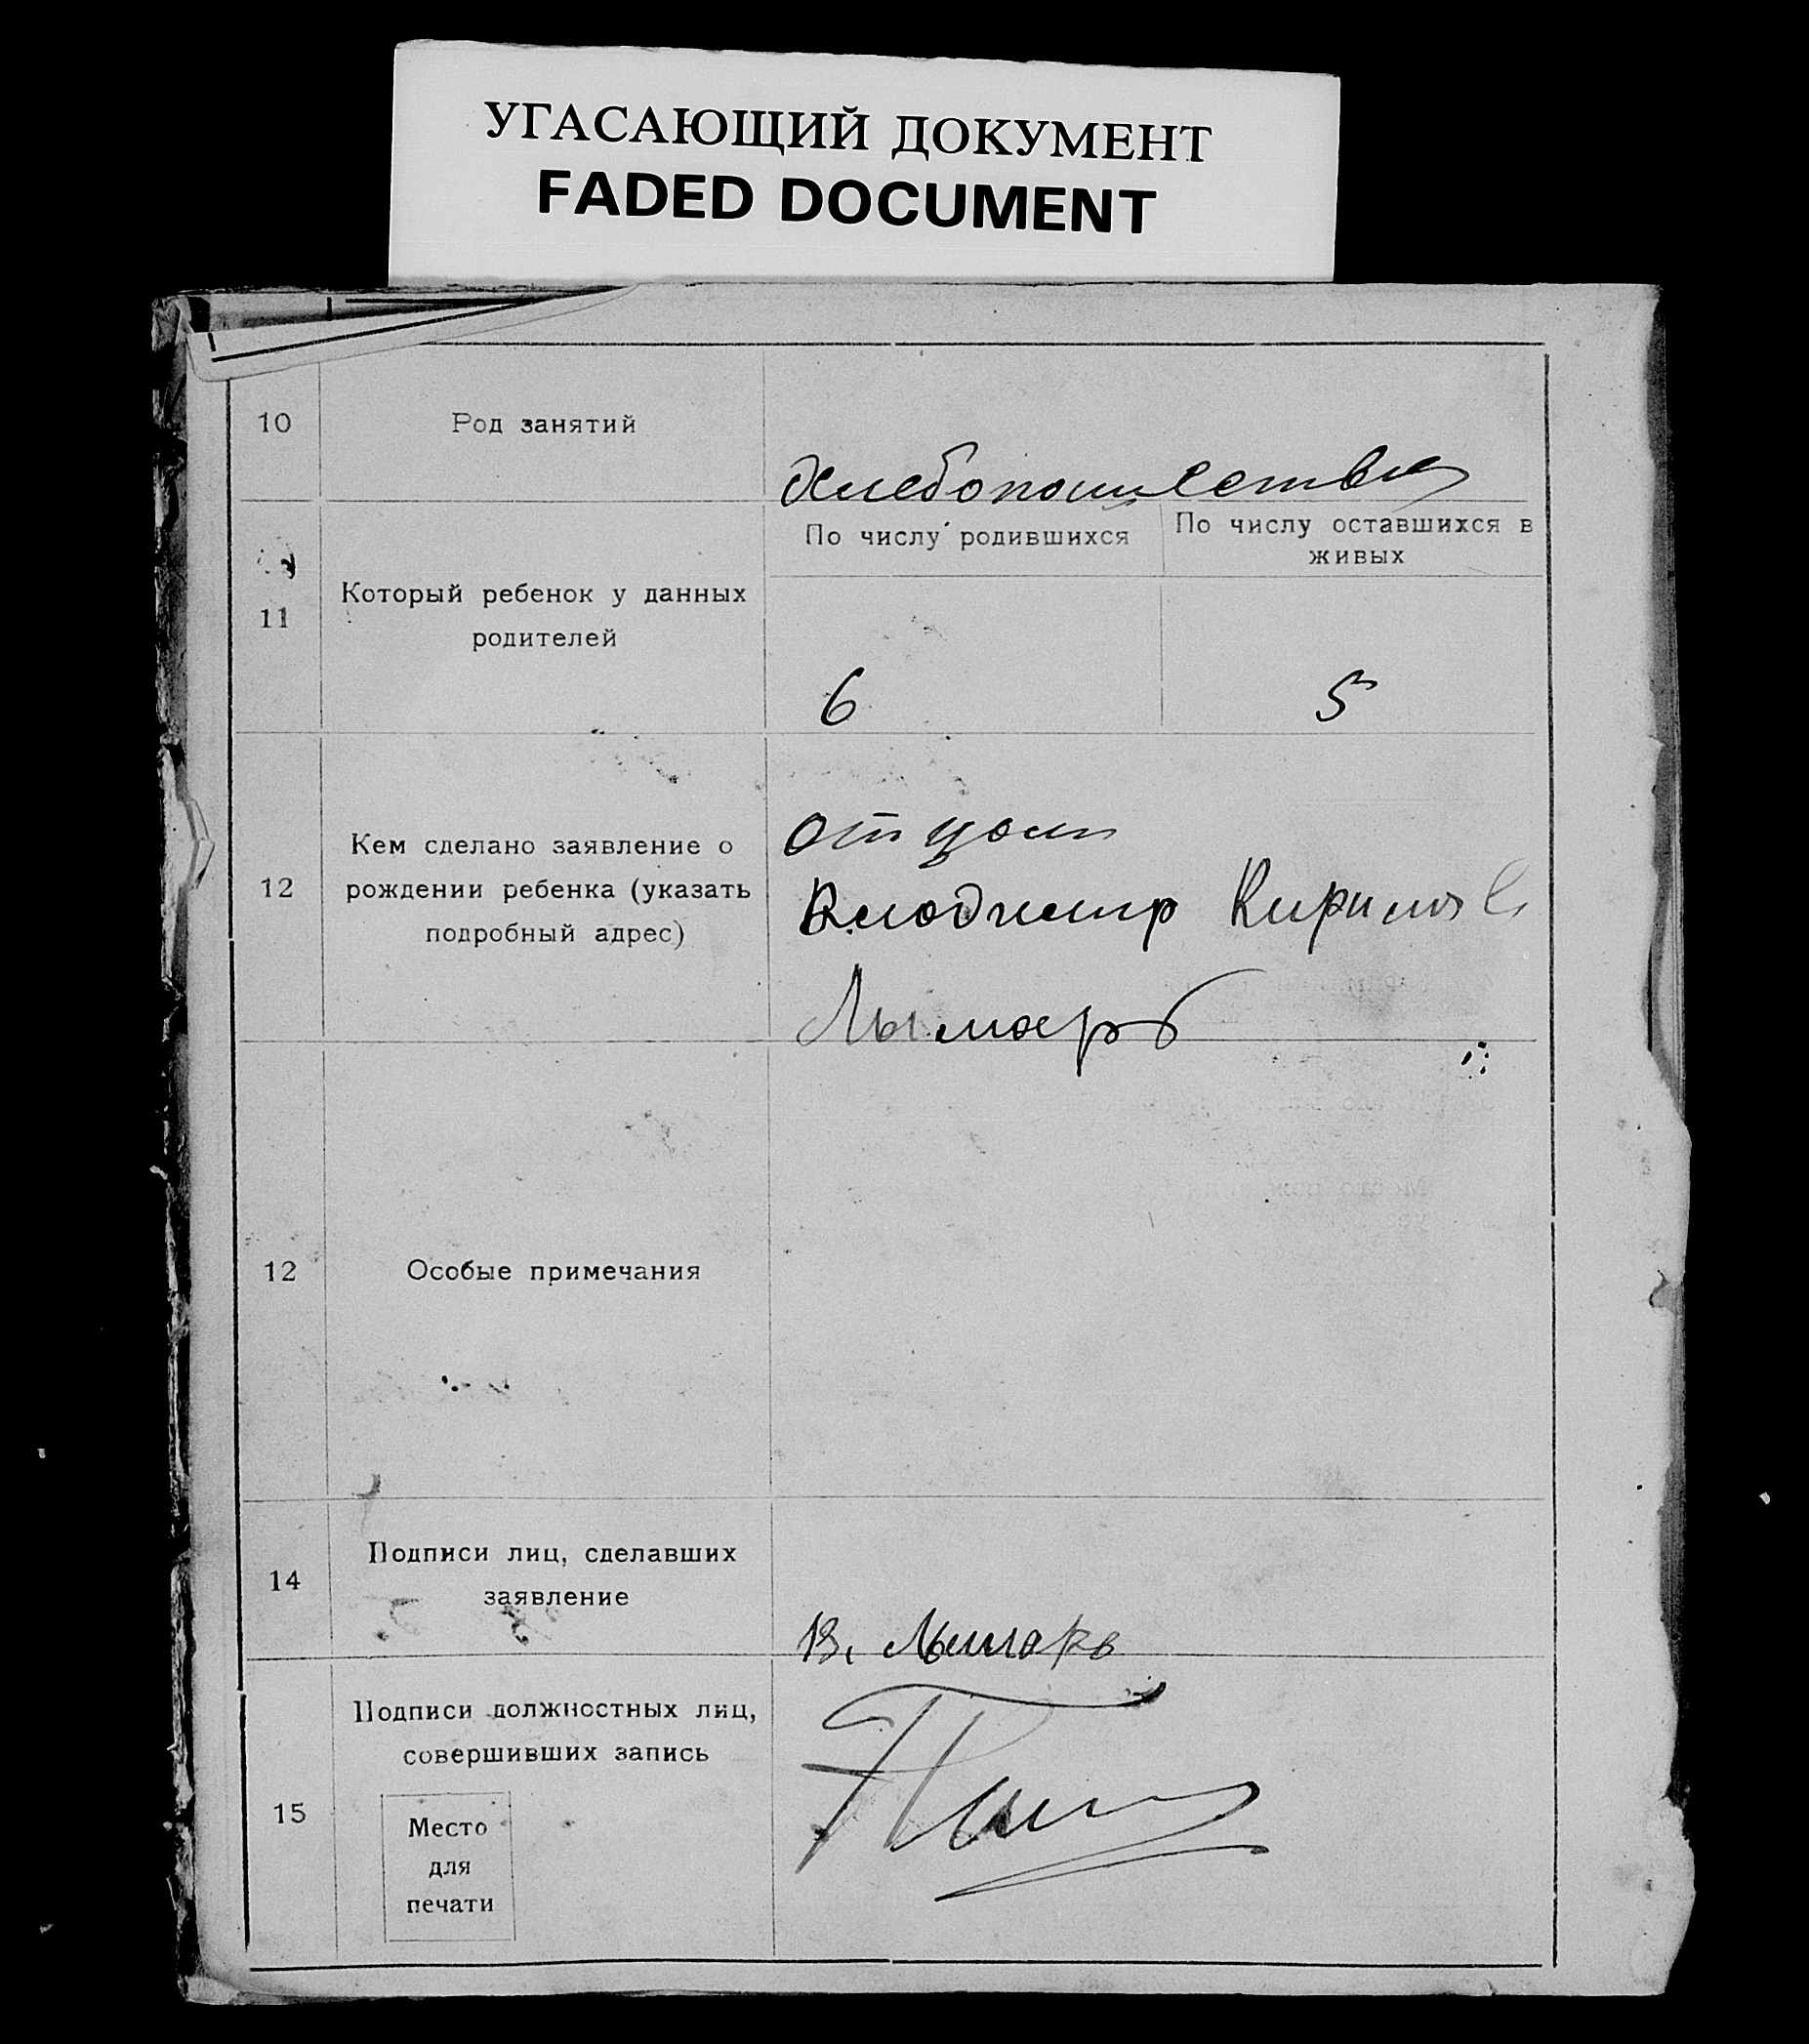 УГАСАЮЩИЙ ДОКУМЕНТ
FADED DOCUMENT
10
Род занятий
По числу родившихся
По числу оставшихся в
живых
11
Который ребенок у данных
родителей
6
5
12
Кем сделано заявление о
рождении ребенка (указать
подробный адрес)
отцом
Лымарь
12
Особые примечания
14
Подписи лиц, сделавших
заявление
В. Лымарь
15
Подписи должностных лиц,
совершивших запись
Место
для
печати